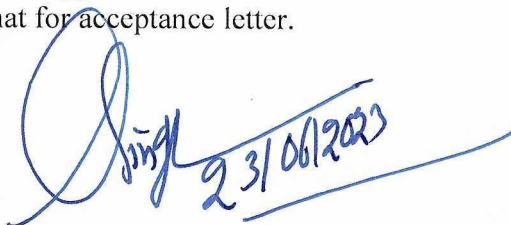 hat for acceptance letter.
Singh
23/06/2023